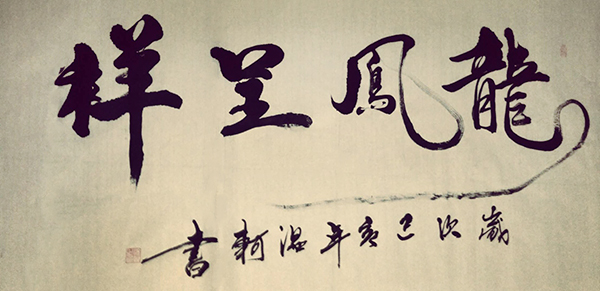 龍鳳呈祥
歲次己亥年溫軻書